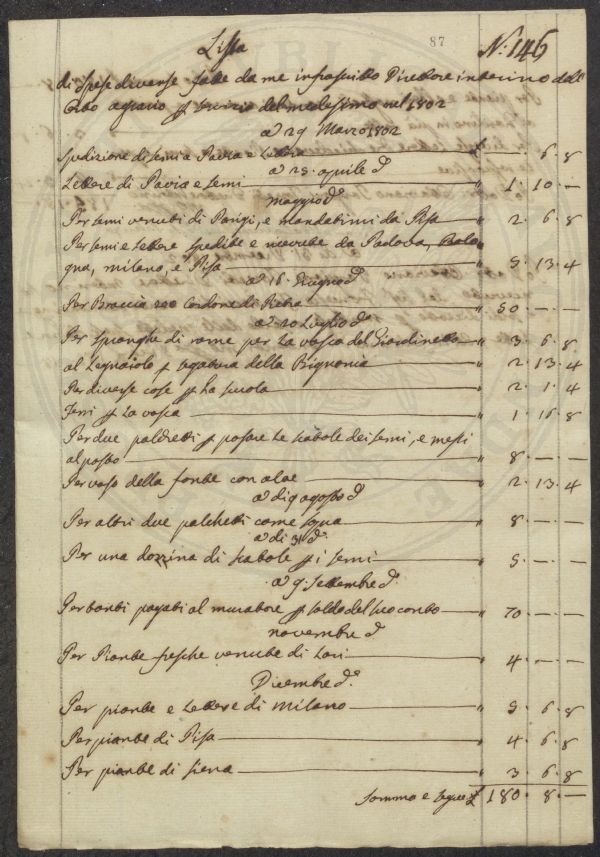 87
N. 146
Lista
di spese diverse fatte da me infrascritto Direttore interino dell'
Orto agrario p servizio del medesimo nel 1802
a 29 Marzo 1802
Spedizione di semi a Pavia e Lettera — " — 6. 8
a 23. aprile d.
Lettere di Pavia e semi — " 1. 10. —
maggio d.
Per semi venuti di Parigi, e mandatimi da Pisa — " 2. 6. 8
Per semi e Lettere spedite e ricevute da Padova, Bolo
gna, milano, e Pisa — " 5. 13. 4
a 16. Giugno d.
Per Braccia 200 Cordone di Pietra — " 50. — . —
a 20 Luglio d.
Per spranghe di rame per la vasca del Giardinetto — " 3. 6. 8
al Legnaiolo p legatura della Bignonia — " 2. 13. 4
Per diverse cose p la scuola — " 2. 1. 4
Ferri p la vasca — " 1. 16. 8
Per due palchetti p posare le scatole dei semi, e messi
al posto — " 8. — . —
Per vaso della fonte con aloe — " 2. 13. 4
a di 9 agosto d.
Per altri due palchetti come sopra — " 8. — . —
a di 31 d.
Per una dozzina di scatole p i semi — " 5. — . —
a 9. Settembre d.
Per tanti pagati al muratore p saldo del suo conto — " 70. — . —
novembre d.
Per Piante fresche venute di — " 4. — . —
Dicembre d.
Per piante e Lettere di milano — " 5. 6. 8
Per piante di Pisa — " 4. 6. 8
Per piante di siena — " 3. 6. 8
Somma e segue £ 180. 8. —